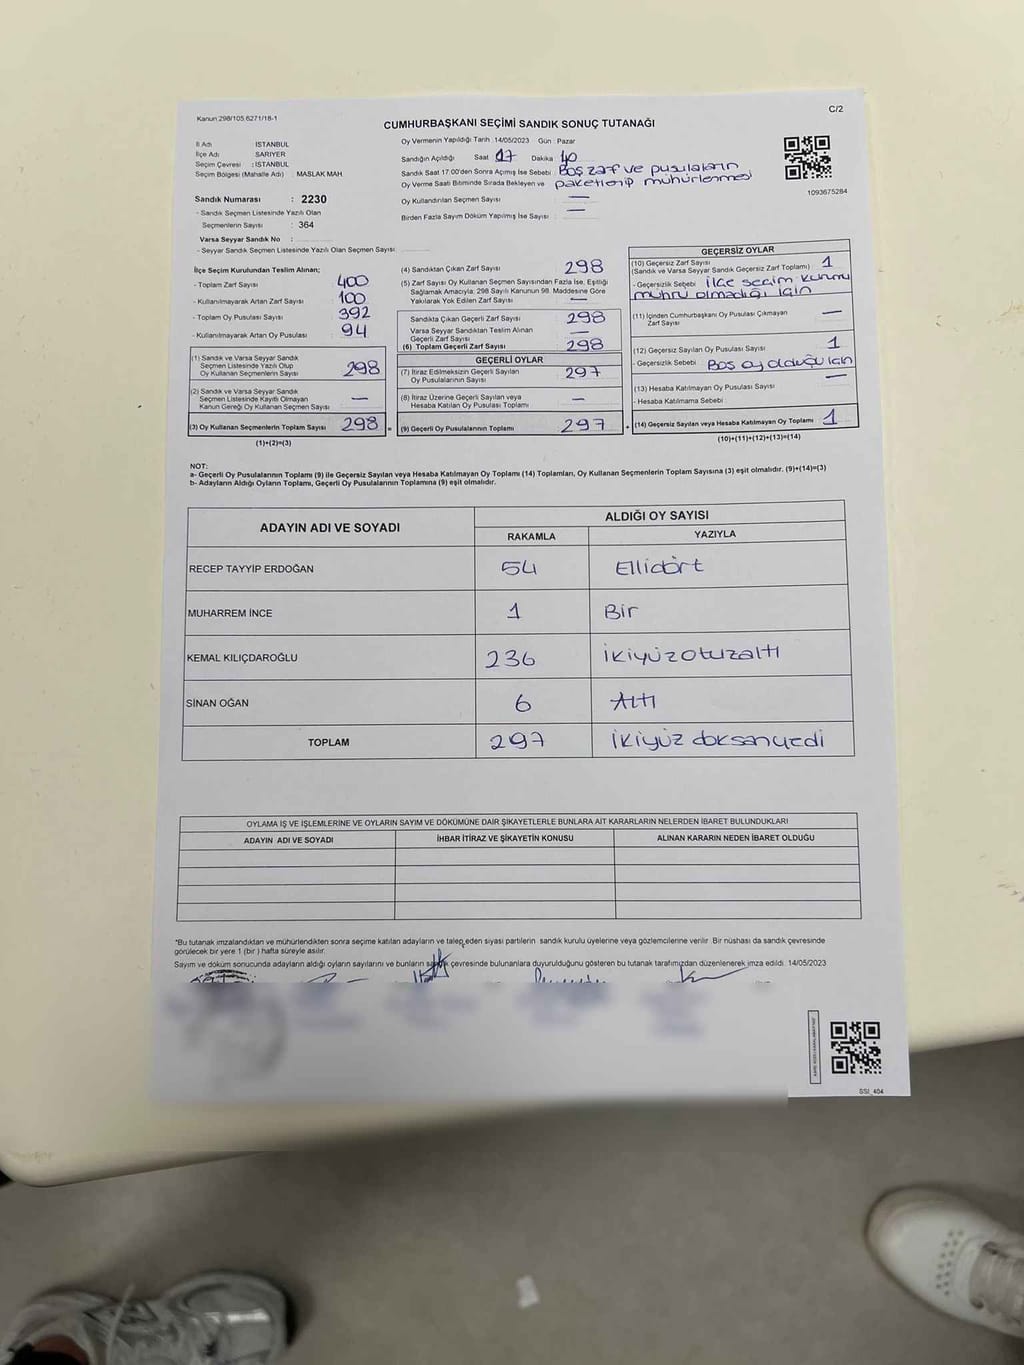 C/2
Kanun 298/105.6271/18-1
CUMHURBAŞKANI SEÇİMİ SANDIK SONUÇ TUTANAĞI
İl Adı : İSTANBUL
İlçe Adı : SARIYER
Seçim Çevresi : İSTANBUL
Seçim Bölgesi (Mahalle Adı) : MASLAK MAH
Sandık Numarası : 2230
- Sandık Seçmen Listesinde Yazılı Olan
Seçmenlerin Sayısı : 364
Varsa Seyyar Sandık No :
- Seyyar Sandık Seçmen Listesinde Yazılı Olan Seçmen Sayısı:
Oy Vermenin Yapıldığı Tarih :14/05/2023 Gün : Pazar
Sandığın Açıldığı Saat 17 Dakika 40
Sandık Saat 17.00'den Sonra Açımış İse Sebebi : Boş zarf ve pusulaların
Oy Verme Saati Bitiminde Sırada Bekleyen ve paketlenip mühürlenmesi
Oy Kullandırılan Seçmen Sayısı : —
Birden Fazla Sayım Döküm Yapılmış İse Sayısı : —
1093675284
İlçe Seçim Kurulundan Teslim Alınan;
- Toplam Zarf Sayısı 400
- Kullanılmayarak Artan Zarf Sayısı 100
- Toplam Oy Pusulası Sayısı 392
- Kullanılmayarak Artan Oy Pusulası 94
(1) Sandık ve Varsa Seyyar Sandık
Seçmen Listesinde Yazılı Olup
Oy Kullanan Seçmenlerin Sayısı 298
(2) Sandık ve Varsa Seyyar Sandık
Seçmen Listesinde Kayıtlı Olmayan
Kanun Gereği Oy Kullanan Seçmen Sayısı —
(3) Oy Kullanan Seçmenlerin Toplam Sayısı 298
(1)+(2)=(3)
(4) Sandıktan Çıkan Zarf Sayısı 298
(5) Zarf Sayısı Oy Kullanan Seçmen Sayısından Fazla İse, Eşitliği
Sağlamak Amacıyla; 298 Sayılı Kanunun 98. Maddesine Göre
Yakılarak Yok Edilen Zarf Sayısı —
Sandıkta Çıkan Geçerli Zarf Sayısı 298
Varsa Seyyar Sandıktan Teslim Alınan
Geçerli Zarf Sayısı —
(6) Toplam Geçerli Zarf Sayısı 298
GEÇERLİ OYLAR
(7) İtiraz Edilmeksizin Geçerli Sayılan
Oy Pusulalarının Sayısı 297
(8) İtiraz Üzerine Geçerli Sayılan veya
Hesaba Katılan Oy Pusulası Toplamı —
= (9) Geçerli Oy Pusulalarının Toplamı 297
GEÇERSİZ OYLAR
(10) Geçersiz Zarf Sayısı
(Sandık ve Varsa Seyyar Sandık Geçersiz Zarf Toplamı) 1
- Geçersizlik Sebebi : İlçe seçim kurulu
mührü olmadığı için
(11) İçinden Cumhurbaşkanı Oy Pusulası Çıkmayan
Zarf Sayısı —
(12) Geçersiz Sayılan Oy Pusulası Sayısı 1
- Geçersizlik Sebebi : Boş oy olduğu için
(13) Hesaba Katılmayan Oy Pusulası Sayısı —
- Hesaba Katılmama Sebebi :
+ (14) Geçersiz Sayılan veya Hesaba Katılmayan Oy Toplamı 1
(10)+(11)+(12)+(13)=(14)
NOT:
a- Geçerli Oy Pusulalarının Toplamı (9) ile Geçersiz Sayılan veya Hesaba Katılmayan Oy Toplamı (14) Toplamları, Oy Kullanan Seçmenlerin Toplam Sayısına (3) eşit olmalıdır. (9)+(14)=(3)
b- Adayların Aldığı Oyların Toplamı, Geçerli Oy Pusulalarının Toplamına (9) eşit olmalıdır.
ADAYIN ADI VE SOYADI ALDIĞI OY SAYISI
RAKAMLA YAZIYLA
RECEP TAYYİP ERDOĞAN 54 Ellidört
MUHARREM İNCE 1 Bir
KEMAL KILIÇDAROĞLU 236 İkiyüzotuzaltı
SİNAN OĞAN 6 Altı
TOPLAM 297 İkiyüz doksanyedi
OYLAMA İŞ VE İŞLEMLERİNE VE OYLARIN SAYIM VE DÖKÜMÜNE DAİR ŞİKAYETLERLE BUNLARA AİT KARARLARIN NELERDEN İBARET BULUNDUKLARI
ADAYIN ADI VE SOYADI İHBAR İTİRAZ VE ŞİKAYETİN KONUSU ALINAN KARARIN NEDEN İBARET OLDUĞU
*Bu tutanak imzalandıktan ve mühürlendikten sonra seçime katılan adayların ve talep eden siyasi partilerin sandık kurulu üyelerine veya gözlemcilerine verilir. Bir nüshası da sandık çevresinde
görülecek bir yere 1 (bir) hafta süreyle asılır.
Sayım ve döküm sonucunda adayların aldığı oyların sayılarını ve bunların sandık çevresinde bulunanlara duyurulduğunu gösteren bu tutanak tarafımızdan düzenlenerek imza edildi. 14/05/2023
SSI_404